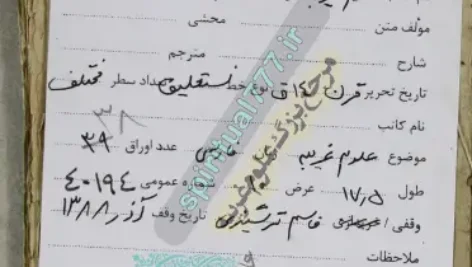 مؤلف متن محشی
شارح مترجم
تاریخ تحریر قرن ۱۴ ق نوع خط نستعلیق تعداد سطر مختلف
نام کاتب ۳۸
موضوع علوم غریبه فارسی عدد اوراق ۳۹
طول ۱۷٫۵ عرض شماره عمومی ۴۰۱۹۴
وقفی قاسم تاریخ وقف آذر ۱۳۸۸
ملاحظات
spiritual777.ir
مرجع بزرگ علوم غریبه